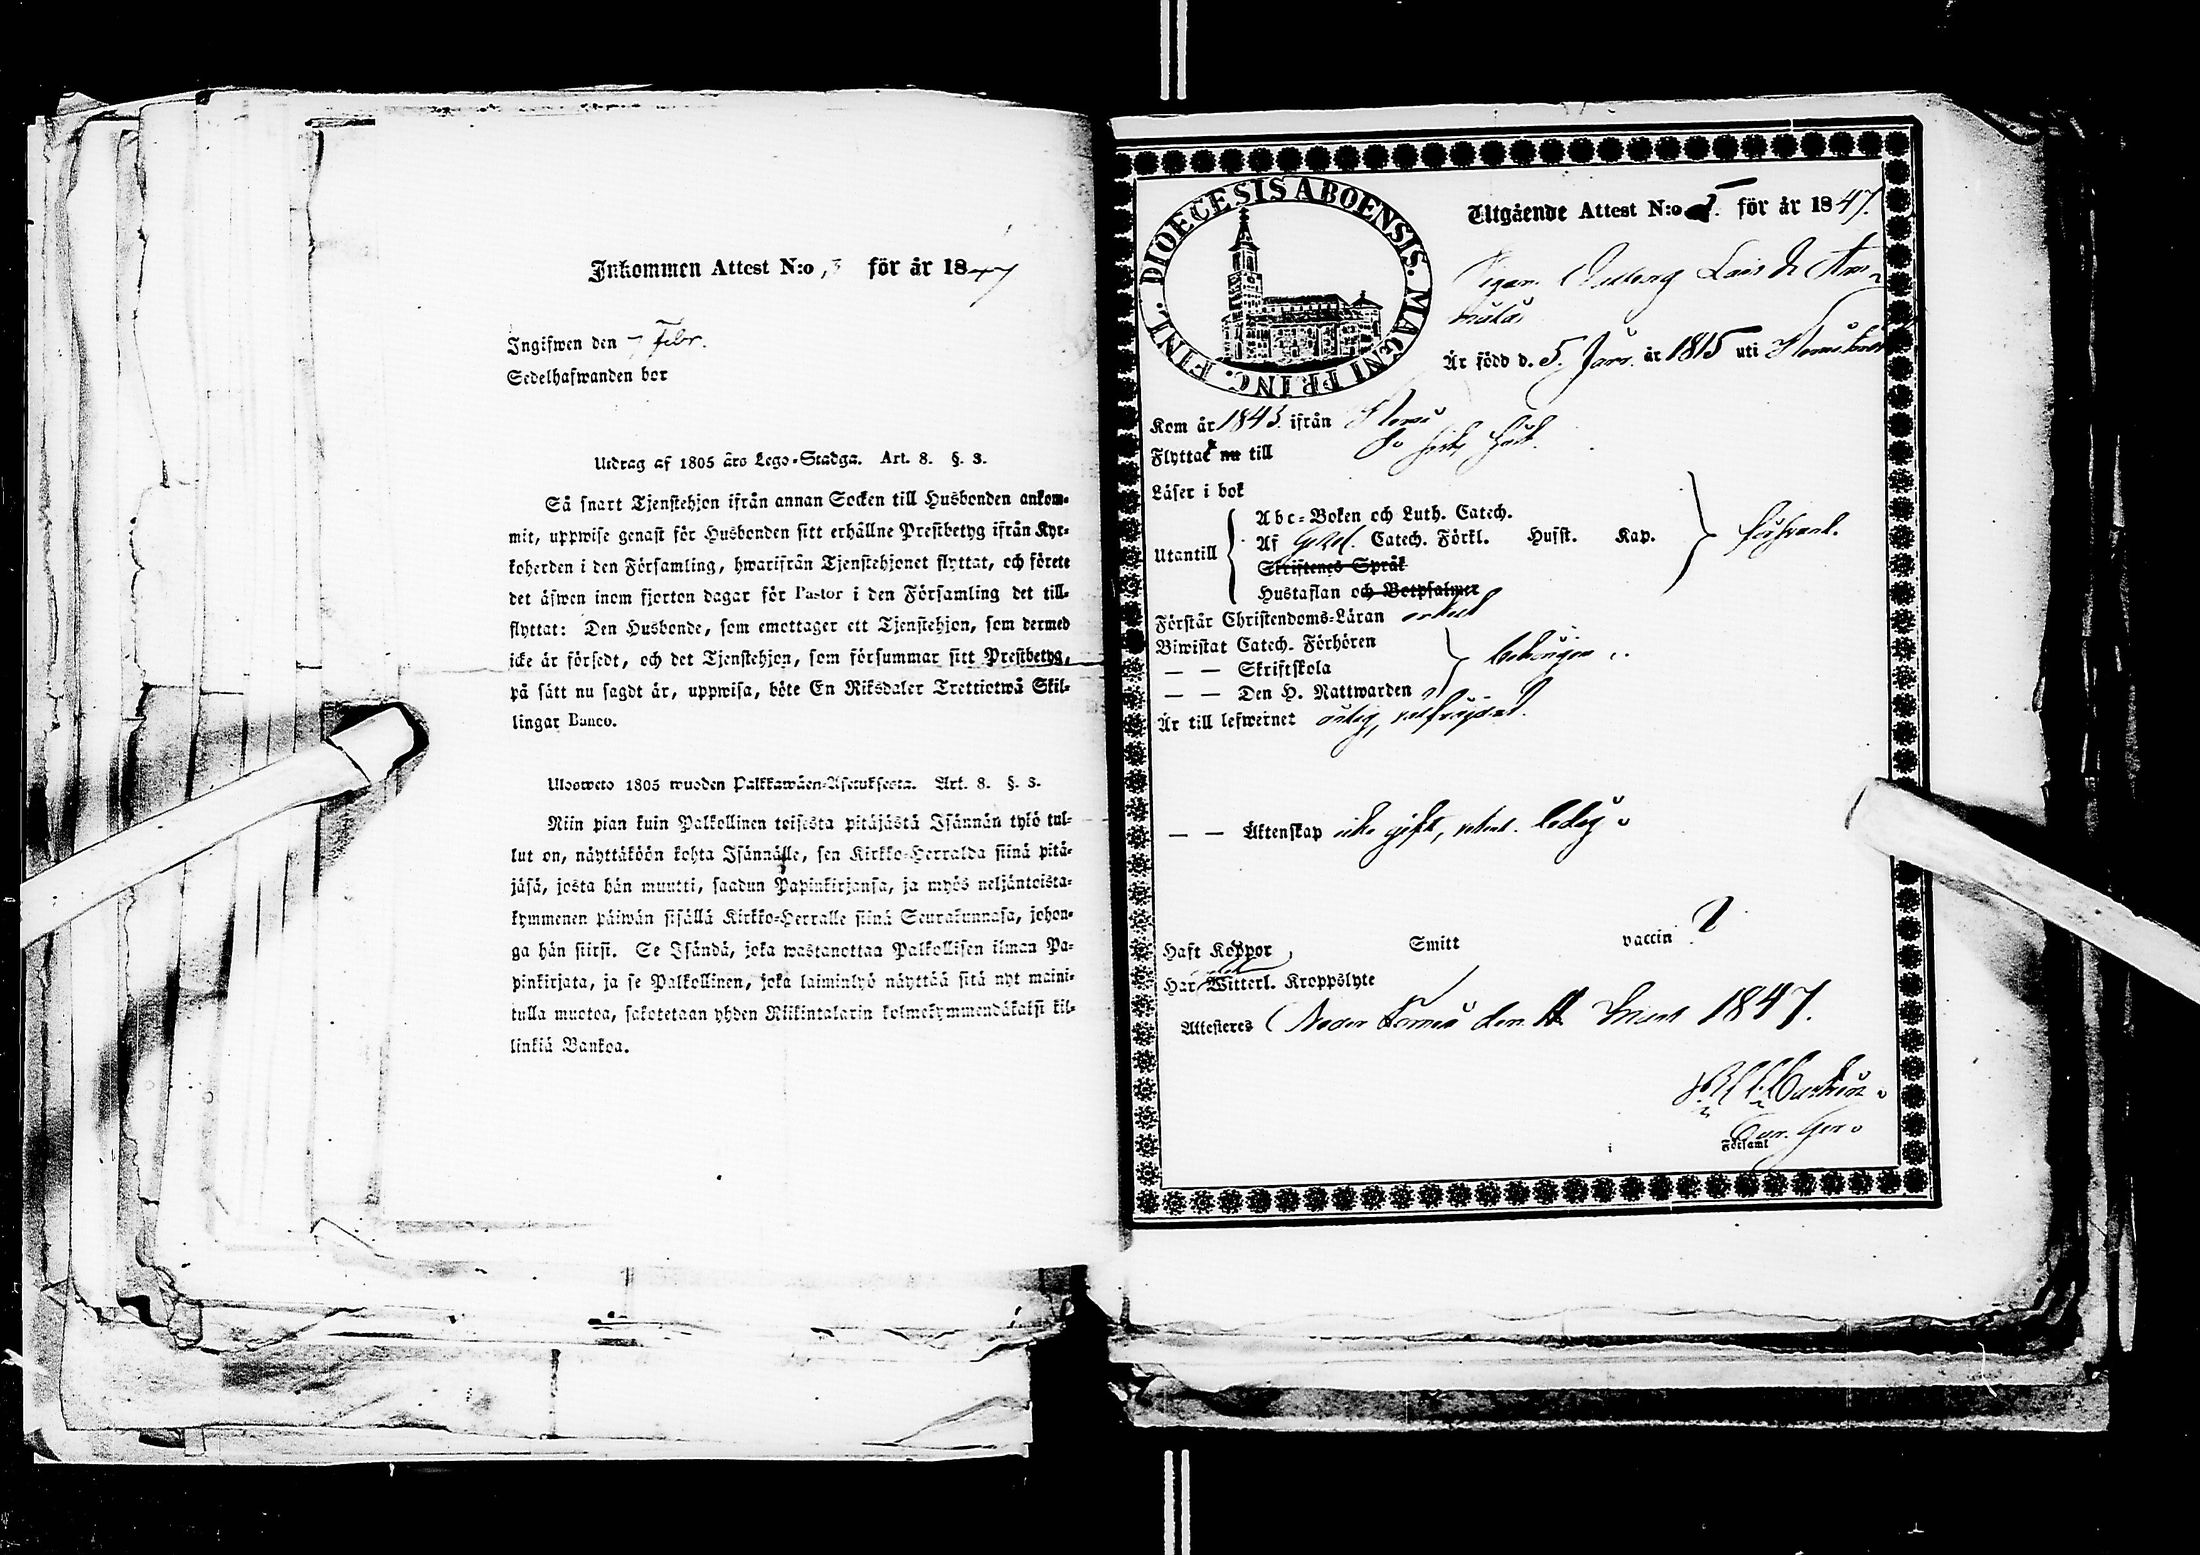 Inkommen Attest N:o 3 för år 1847
Ingifwen den 7 Febr.
Sedelhafwanden bor
Utdrag af 1805 års Lego-Stadga. Art. 8. §. 3.
Så snart Tjenstehjon ifrån annan Socken till Husbonden ankom-
mit, uppwise genast för Husbonden sitt erhållne Prestbetyg ifrån Kyr-
koherden i den Församling, hwarifrån Tjenstehjonet flyttat, och förete
det äfwen inom fjorton dagar för Pastor i den Församling det till-
flyttat: Den Husbonde, som emottager ett Tjenstehjon, som dermed
icke är försedt, och det Tjenstehjon, som försummar sitt Prestbetyg,
på sätt nu sagdt är, uppwisa, böte En Riksdaler Trettiotwå Skil-
lingar Banco.
Ulosweto 1805 wuoden Palkkawäen-Asetuksesta. Art. 8. §. 3.
Niin pian kuin Palkollinen toisesta pitäjästä Isännän tykö tul-
lut on, näyttäköön kohta Isännälle, sen Kirkko-Herralda siinä pitä-
jäsä, josta hän muutti, saadun Papinkirjansa, ja myös neljäntoista-
kymmenen päiwän sisällä Kirkko-Herralle siinä Seurakunnasa, johon-
ga hän siirsi. Se Isändä, joka wastanottaa Palkollisen ilman Pa-
pinkirjata, ja se Palkollinen, joka laiminlyö näyttää sitä nyt maini-
tulla muotoa, sakotetaan yhden Riikintalarin kolmekymmendäkaksi kil-
linkiä Bankoa.
DIOECESIS ABOENSIS. MAGNI PRINC. FINL.
Utgående Attest N:o för år 1847.
Pigan Lars d.
Är född d. 5. Janr. år 1815 uti
Kom år 1843 ifrån
Flyttat nu till
Läser i bok
Abc-Boken och Luth. Catech.
Utantill Af Catech. Förkl. Husst. Kap. försvarl.
Skriftenes Språk
Hustaflan och Botpsalmer
Förstår Christendoms-Läran enkelt
Biwistat Catech. Förhören
— — Skriftskola behörigen
— — Den H. Nattwarden
Är till lefwernet ärlig, välfrejdad.
— — Äktenskap icke gift, utan ledig
Haft Koppor Smitt vaccin
Har Witterl. Kroppslyte
Attesteras Neder Torneå den 1847.
Församl